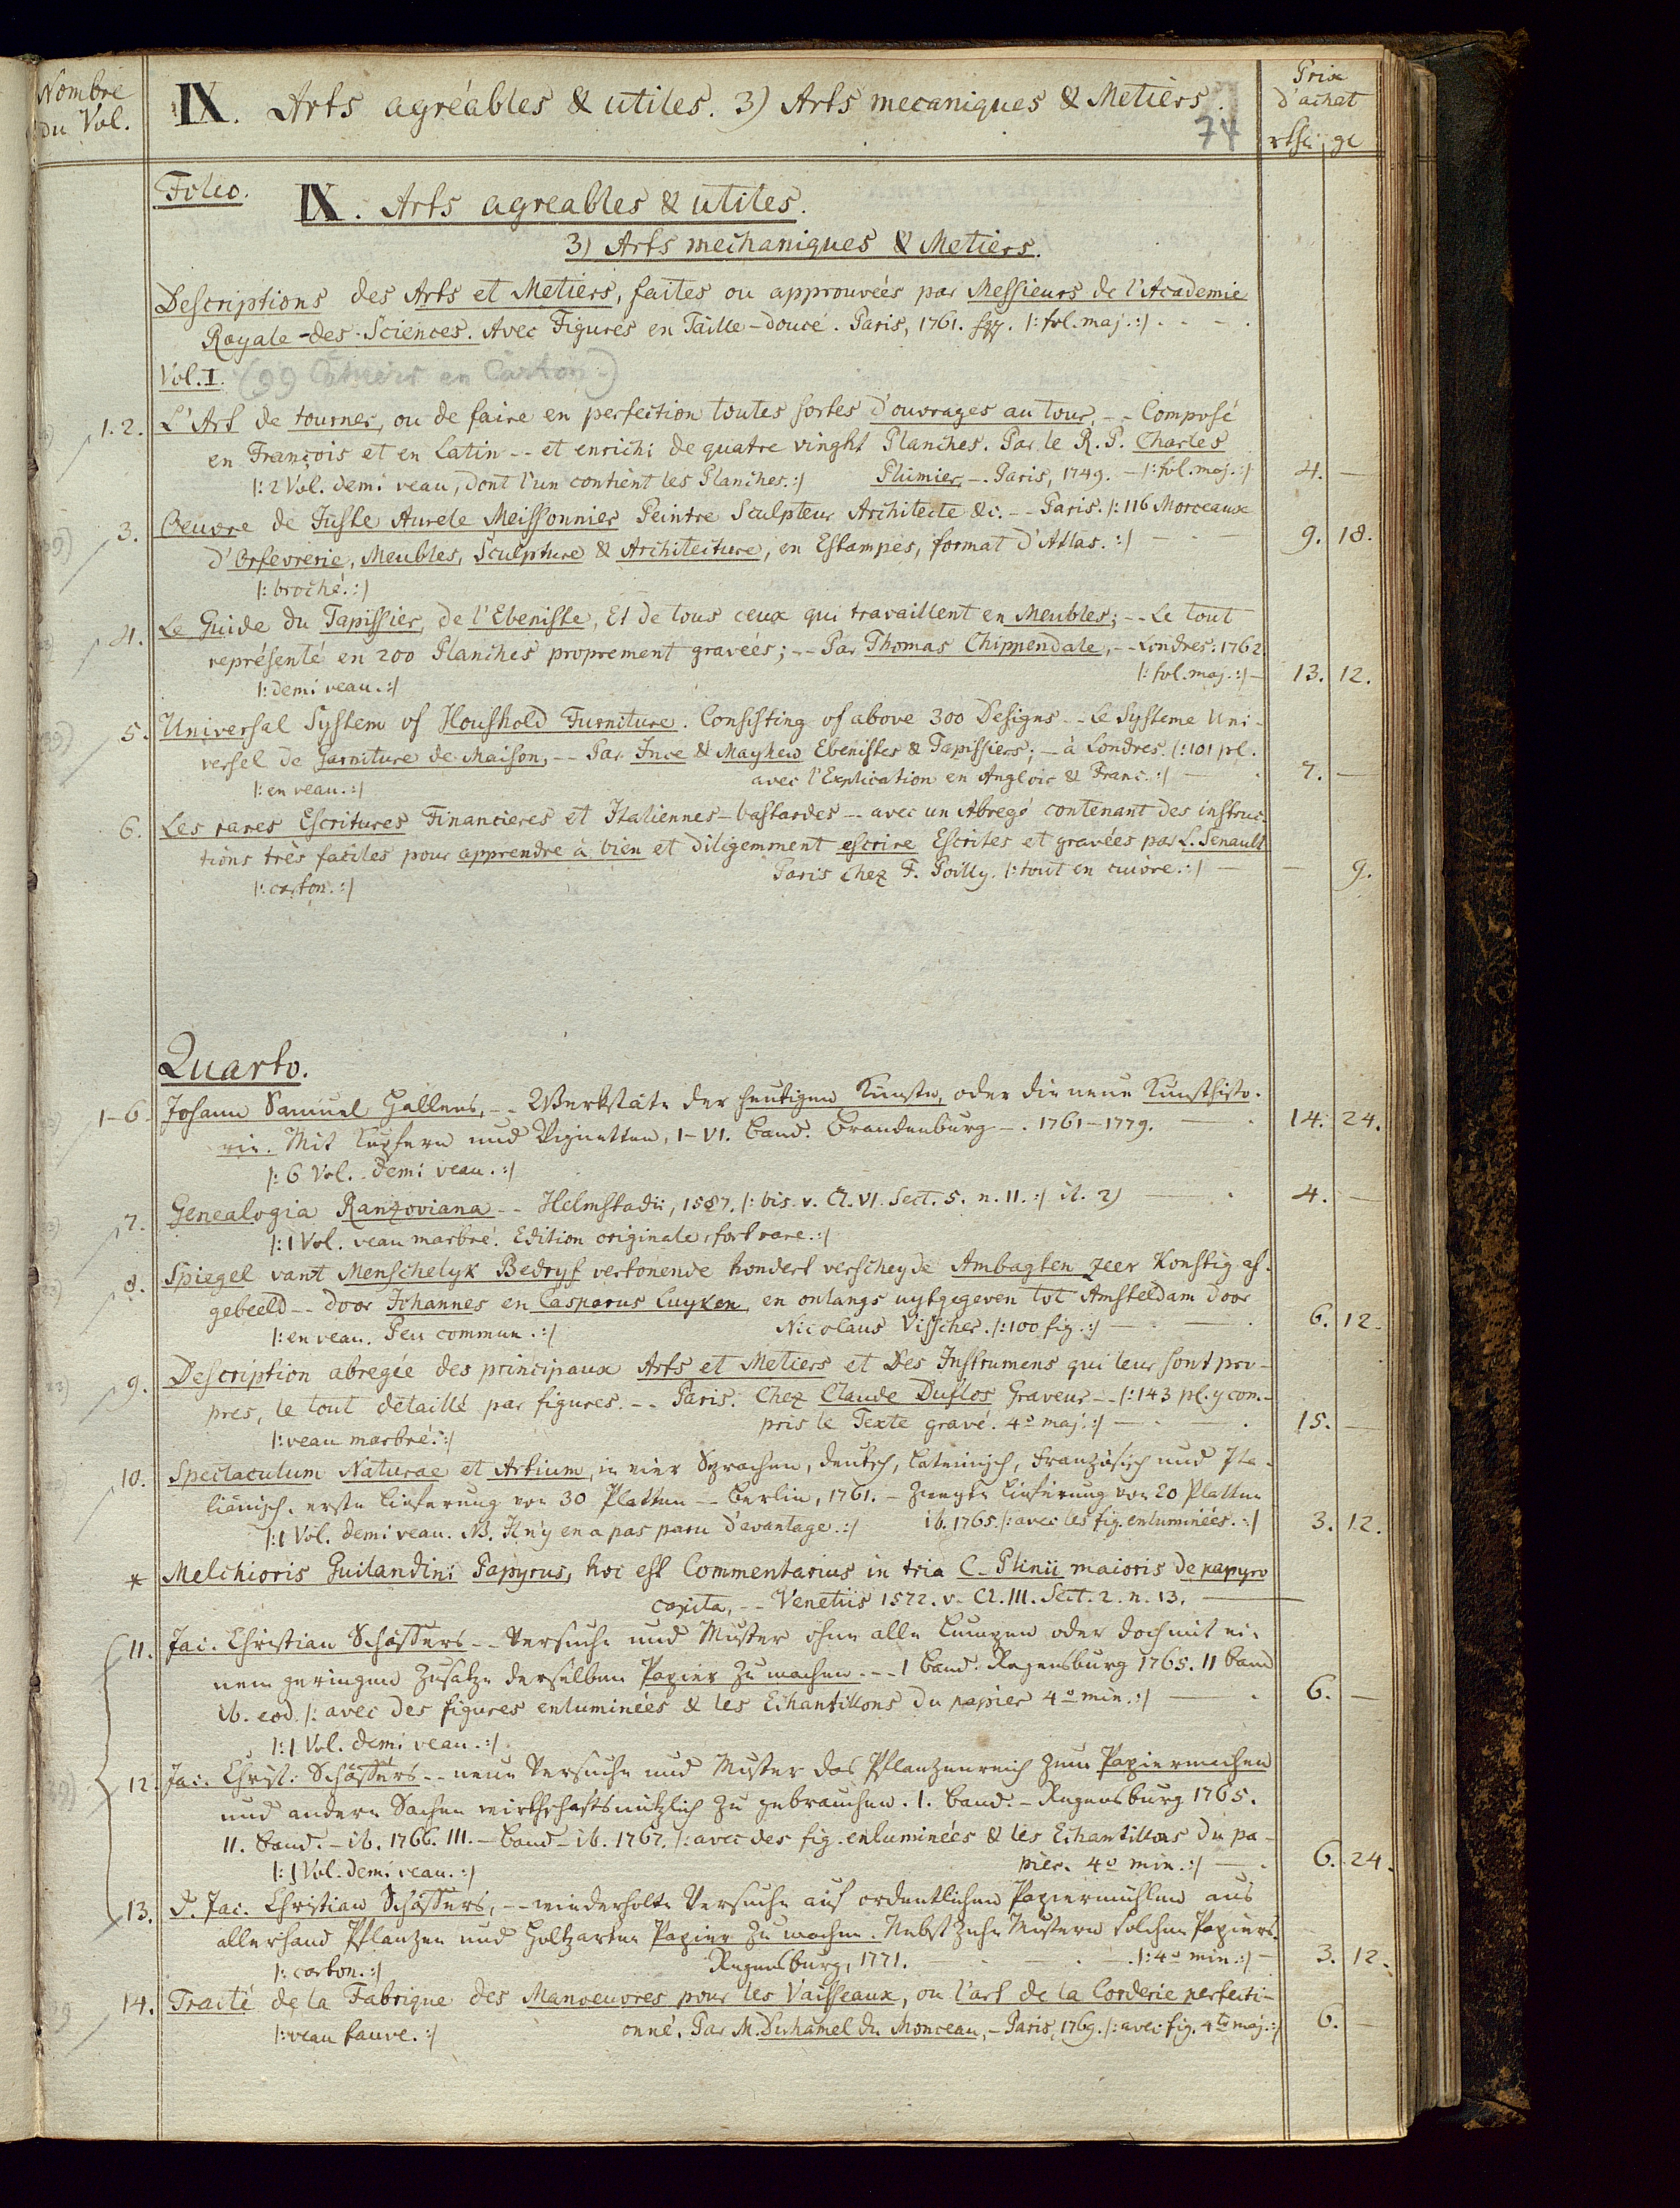 Nombre
du Vol.
IX. Arts agréables & utiles. 3) Arts mecaniques & Metiers.
74
Prix
d'achat
Folio.
IX. Arts agreables & utiles.
3) Arts mechaniques & Metiers.
Descriptions des Arts et Metiers, faites ou approuvées par Messieurs de l'Academie
Royale-des-Sciences. Avec Figures en Taille-douce. Paris, 1761. sqq. /: fol. maj. :/
Vol. I. (99 Cahiers en Carton.)
1. 2. L'Art de tourner, ou de faire en perfection toutes sortes d'ouvrages au tour, -- Composé
en François et en Latin -- et enrichi de quatre vinght Planches. Par le R. P. Charles
/: 2 Vol. demi veau, dont l'un contient les Planches. :/ Plumier, -. Paris, 1749. - /: fol. maj. :/ 4. —
3. Oeuvre de Juste Aurele Meissonnier Peintre Sculpteur Architecte &c. -- Paris. /: 116 Morceaux
d'Orfevrerie, Meubles, Sculpture & Architecture, en Estampes, format d'Atlas. :/ 9. 18.
/: broché. :/
4. Le Guide du Tapissier, de l'Ebeniste, Et de tous ceux qui travaillent en Meubles; -- Le tout
représenté en 200 Planches proprement gravées; -- Par Thomas Chippendale, -- Londres: 1762
/: demi veau. :/ /: fol. maj. :/ — 13. 12.
5. Universal System of Houshold Furniture. Consisting of above 300 Designs -- Le Systeme Uni-
versel de Garniture de Maison, -- Par Ince & Mayhew Ebenistes & Tapissiers; - à Londres. /: 101 pl.
/: en veau. :/ avec l'Explication en Anglois & Franc. :/ 7. —
6. Les rares Escritures Financieres et Italiennes-bastardes -- avec un Abregé contenant des instruc-
tions très faciles pour apprendre à bien et diligemment escrire Escrites et gravées par L. Senault
/: carton. :/ Paris chez F. Poilly. /: tout en cuivre. :/ — — 9.
Quarto.
1-6. Johann Samuel Hallens, -- Werkstäte der heutigen Künste, oder die neue Kunsthisto-
rie. Mit Kupfern und Vignetten, I-VI. Band. Brandenburg -. 1761-1779. 14. 24.
/: 6 Vol. demi veau. :/
7. Genealogia Ranzoviana -- Helmstadii, 1587. /: bis. v. Cl. VI. Sect. 5. n. 11. :/ it. 2) 4. —
/: 1 Vol. veau marbré. Edition originale, fort rare. :/
8. Spiegel vant Menschelyk Bedryf vertonende hondert verscheyde Ambagten zeer Konstig af-
gebeeld -- door Johannes en Casparus Luyken, en onlangs uytgegeven tot Amsteldam door
/: en veau. Peu commun. :/ Nicolaus Visscher. /: 100 fig. :/ 6. 12.
9. Description abregée des principaux Arts et Metiers et Des Instrumens qui leur sont pro-
pres, le tout détaillé par figures. -- Paris. Chez Claude Duflos Graveur -- /: 143 pl. y com-
/: veau marbré. :/ pris le Texte gravé. 4º maj. :/ 15. —
10. Spectaculum Naturae et Artium, in vier Sprachen, deutsch, Lateinisch, Französisch und Ita-
liänisch. erste Lieferung von 30 Platten -- Berlin, 1761. - zweyte Lieferung von 20 Platten
/: 1 Vol. demi veau. NB. Il n'y en a pas paru d'avantage. :/ ib. 1765. /: avec les fig. enluminées. :/ 3. 12.
* Melchioris Guilandini Papyrus, hoc est Commentarius in tria C. Plinii maioris de papyro
capita, -- Venetiis 1572. v. Cl. III. Sect. 2. n. 13.
11. Jac. Christian Schäffers -- Versuche und Muster ohne alle Lumpen oder doch mit ei-
nem geringen Zusatze derselben Papier zu machen. -- I Band. Regensburg 1765. II Band
ib. eod. /: avec des figures enluminées & les Echantillons du papier 4º min. :/ 6. —
/: 1 Vol. demi veau. :/
12. Jac. Christ. Schäffers -- neue Versuche und Muster das Pflanzenreich zum Papiermachen
und andern Sachen wirthschaftsnützlich zu gebrauchen. I. Band. - Regensburg 1765.
II. Band. - ib. 1766. III. - Band - ib. 1767. /: avec des fig. enluminées & les Echantillons du pa-
/: 1 Vol. demi veau. :/ pier. 4º min. :/ 6. 24.
13. D. Jac. Christian Schäffers, -- wiederholte Versuche auf ordentlichen Papiermühlen aus
allerhand Pflanzen und Holtzarten Papier zu machen. Nebst zehn Mustern solchen Papiers.
/: carton. :/ Regensburg, 1771. /: 4º min. :/ 3. 12.
14. Traité de la Fabrique des Manoeuvres pour les Vaisseaux, ou l'art de la Corderie perfecti-
/: veau fauve. :/ onné. Par M. Duhamel du Monceau, - Paris, 1769. /: avec fig. 4to maj. :/ 6. —